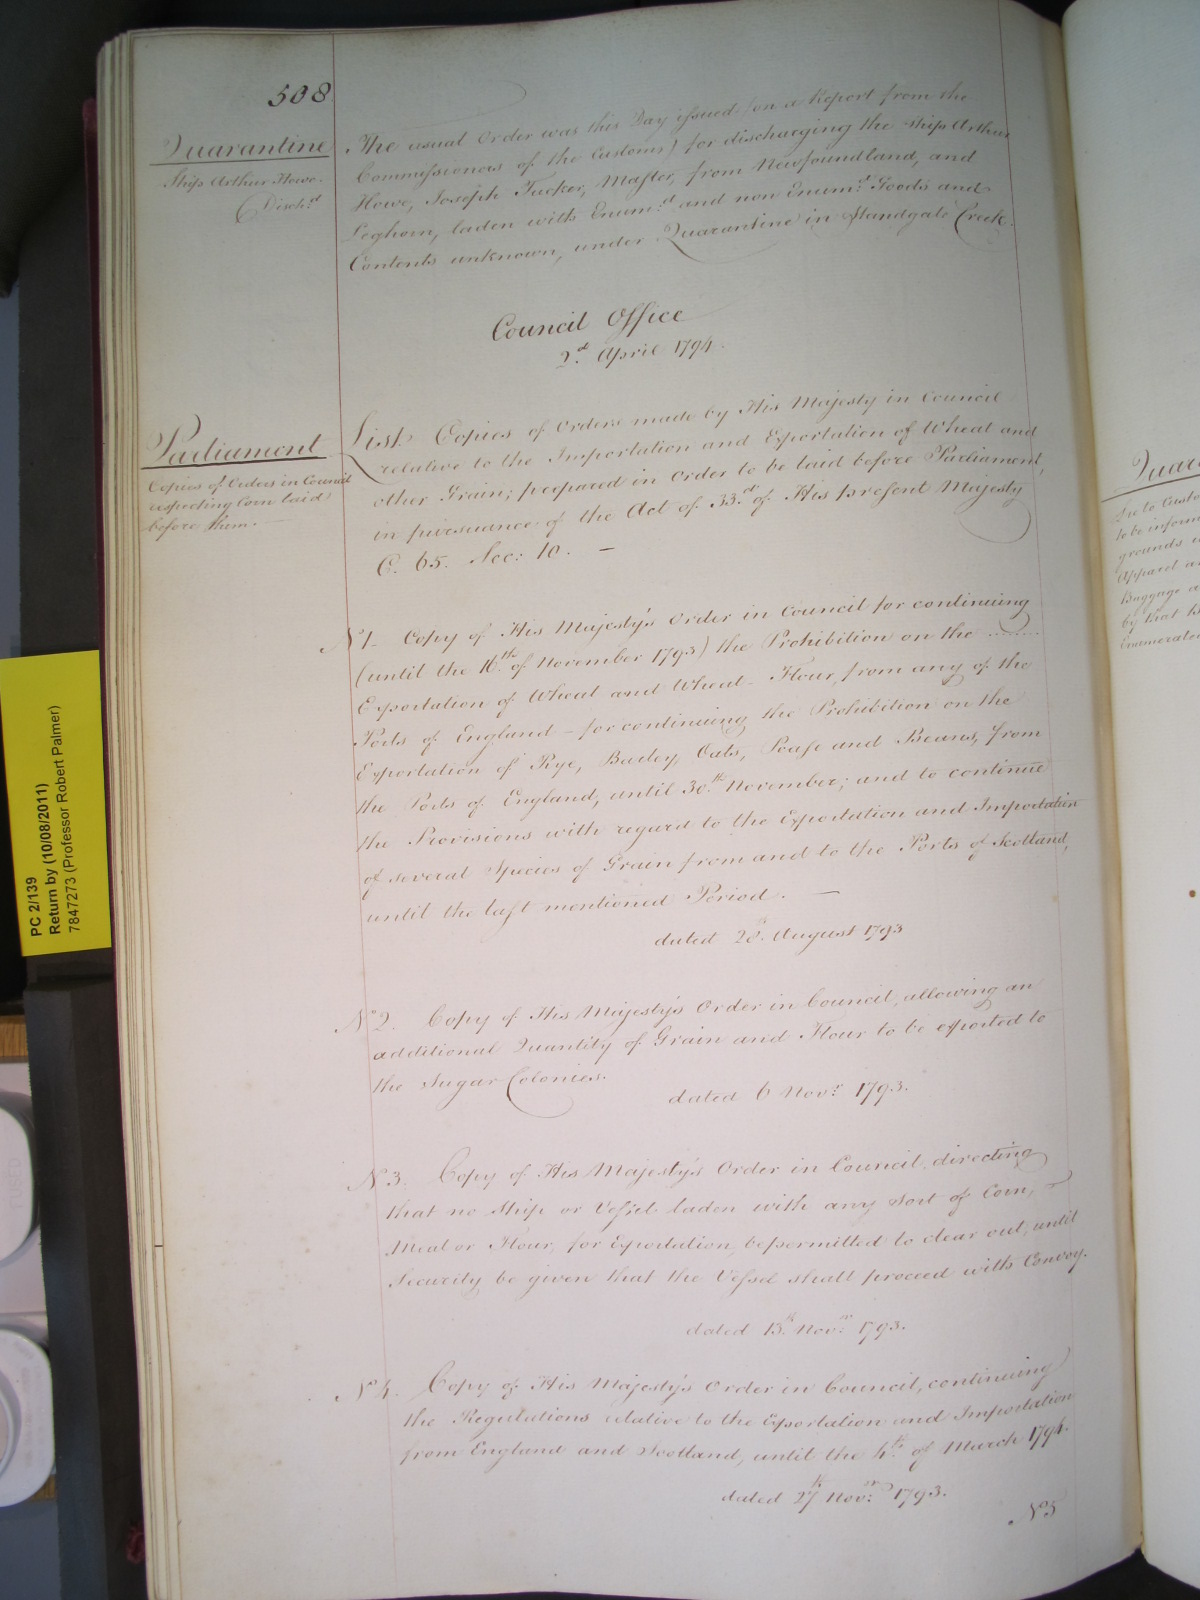 508
Quarantine
Ship Arthur Howe.
Disch.d
The usual Order was this Day issued (on a Report from the
Commissioners of the Customs) for discharging the Ship Arthur
Howe, Joseph Tucker, Master, from Newfoundland, and
Leghorn, laden with Enum.d and non Enum.d Goods and
Contents unknown, under Quarantine in Standgate Creek.
Council Office
2.d April 1794.
Parliament
Copies of Orders in Council
respecting Corn laid
before them.
List Copies of Orders made by His Majesty in Council
relative to the Importation and Exportation of Wheat and
other Grain; prepared in order to be laid before Parliament,
in pursuance of the Act of 33.rd of His present Majesty
C. 65. Sec: 10. —
No 1. Copy of His Majesty's Order in Council for continuing
(until the 16.th of November 1793) the Prohibition on the ........
Exportation of Wheat and Wheat Flour, from any of the
Ports of England – for continuing the Prohibition on the
Exportation of Rye, Barley, Oats, Pease and Beans, from
the Ports of England, until 30.th November; and to continue
the Provisions with regard to the Exportation and Importation
of several Species of Grain from and to the Ports of Scotland,
until the last mentioned Period. —
dated 28. August 1793
No 2. Copy of His Majesty's Order in Council, allowing an
additional Quantity of Grain and Flour to be exported to
the Sugar Colonies.
dated 6 Nov.r 1793.
No 3. Copy of His Majesty's Order in Council, directing
that no Ship or Vessel laden with any Sort of Corn,
Meal or Flour, for Exportation, be permitted to clear out, until
Security be given that the Vessel shall proceed with Convoy.
dated 13.th Nov.r 1793.
No 4. Copy of His Majesty's Order in Council, continuing
the Regulations relative to the Exportation and Importation
from England and Scotland, until the 4.th of March 1794.
dated 27.th Nov.r 1793.
No 5
PC 2/139
Return by (10/08/2011)
7847273 (Professor Robert Palmer)
Quar
to be inform
grounds
Apparel
Baggage
by that